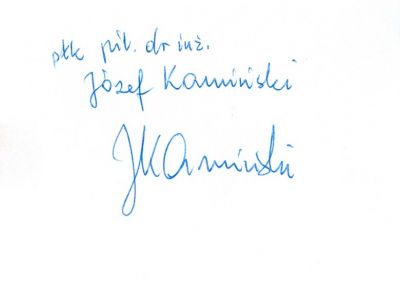 płk pil. dr inż.
Józef Kamiński
JKamiński